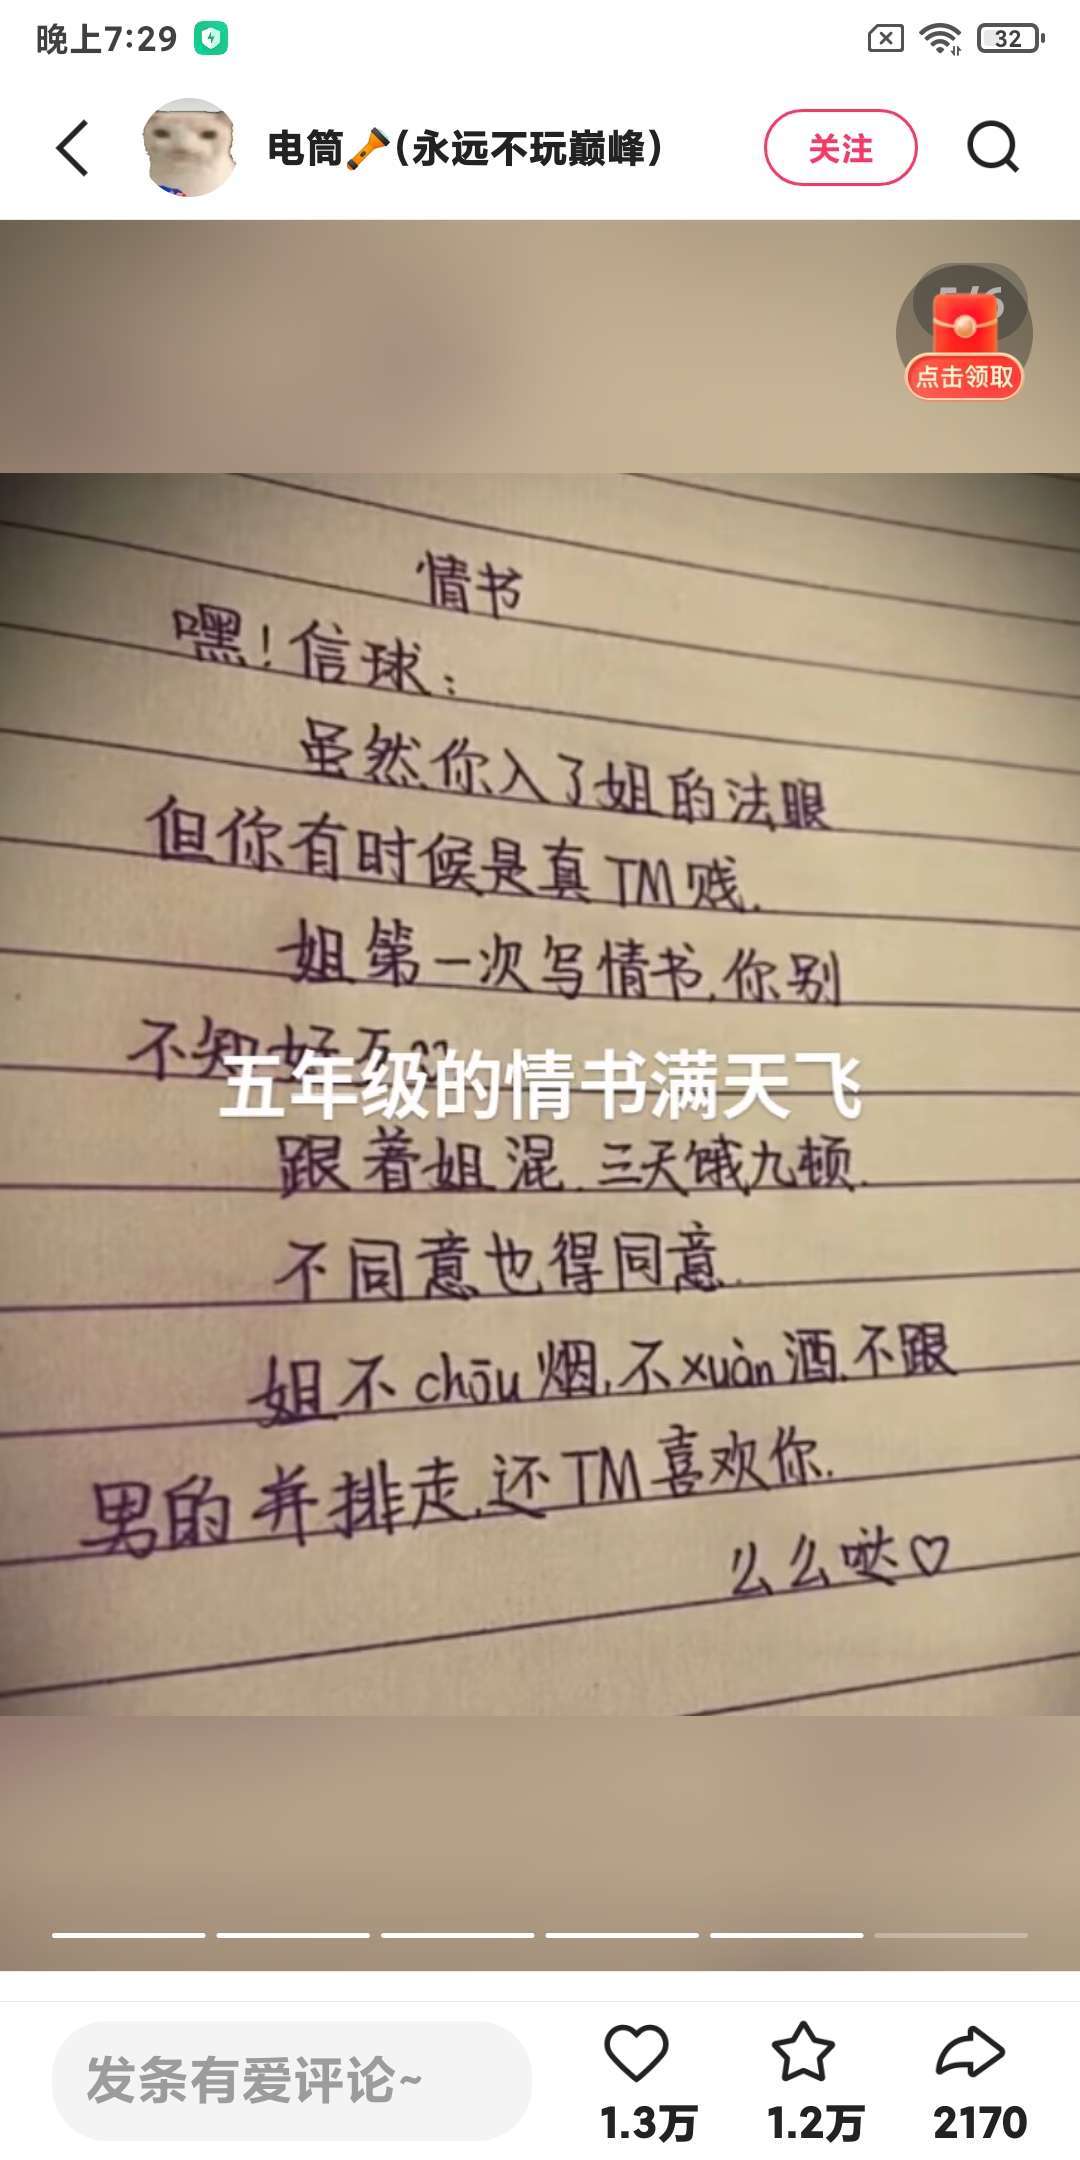 晚上7:29
32
电筒🔦(永远不玩巅峰)
关注
5/6
点击领取
情书
嘿!信球:
虽然你入了姐的法眼
但你有时候是真TM贱.
姐第一次写情书,你别
不知好歹??
五年级的情书满天飞
跟着姐混.三天饿九顿.
不同意也得同意.
姐不chōu烟,不xuàn酒.不跟
男的并排走,还TM喜欢你.
么么哒♡
发条有爱评论~
1.3万
1.2万
2170